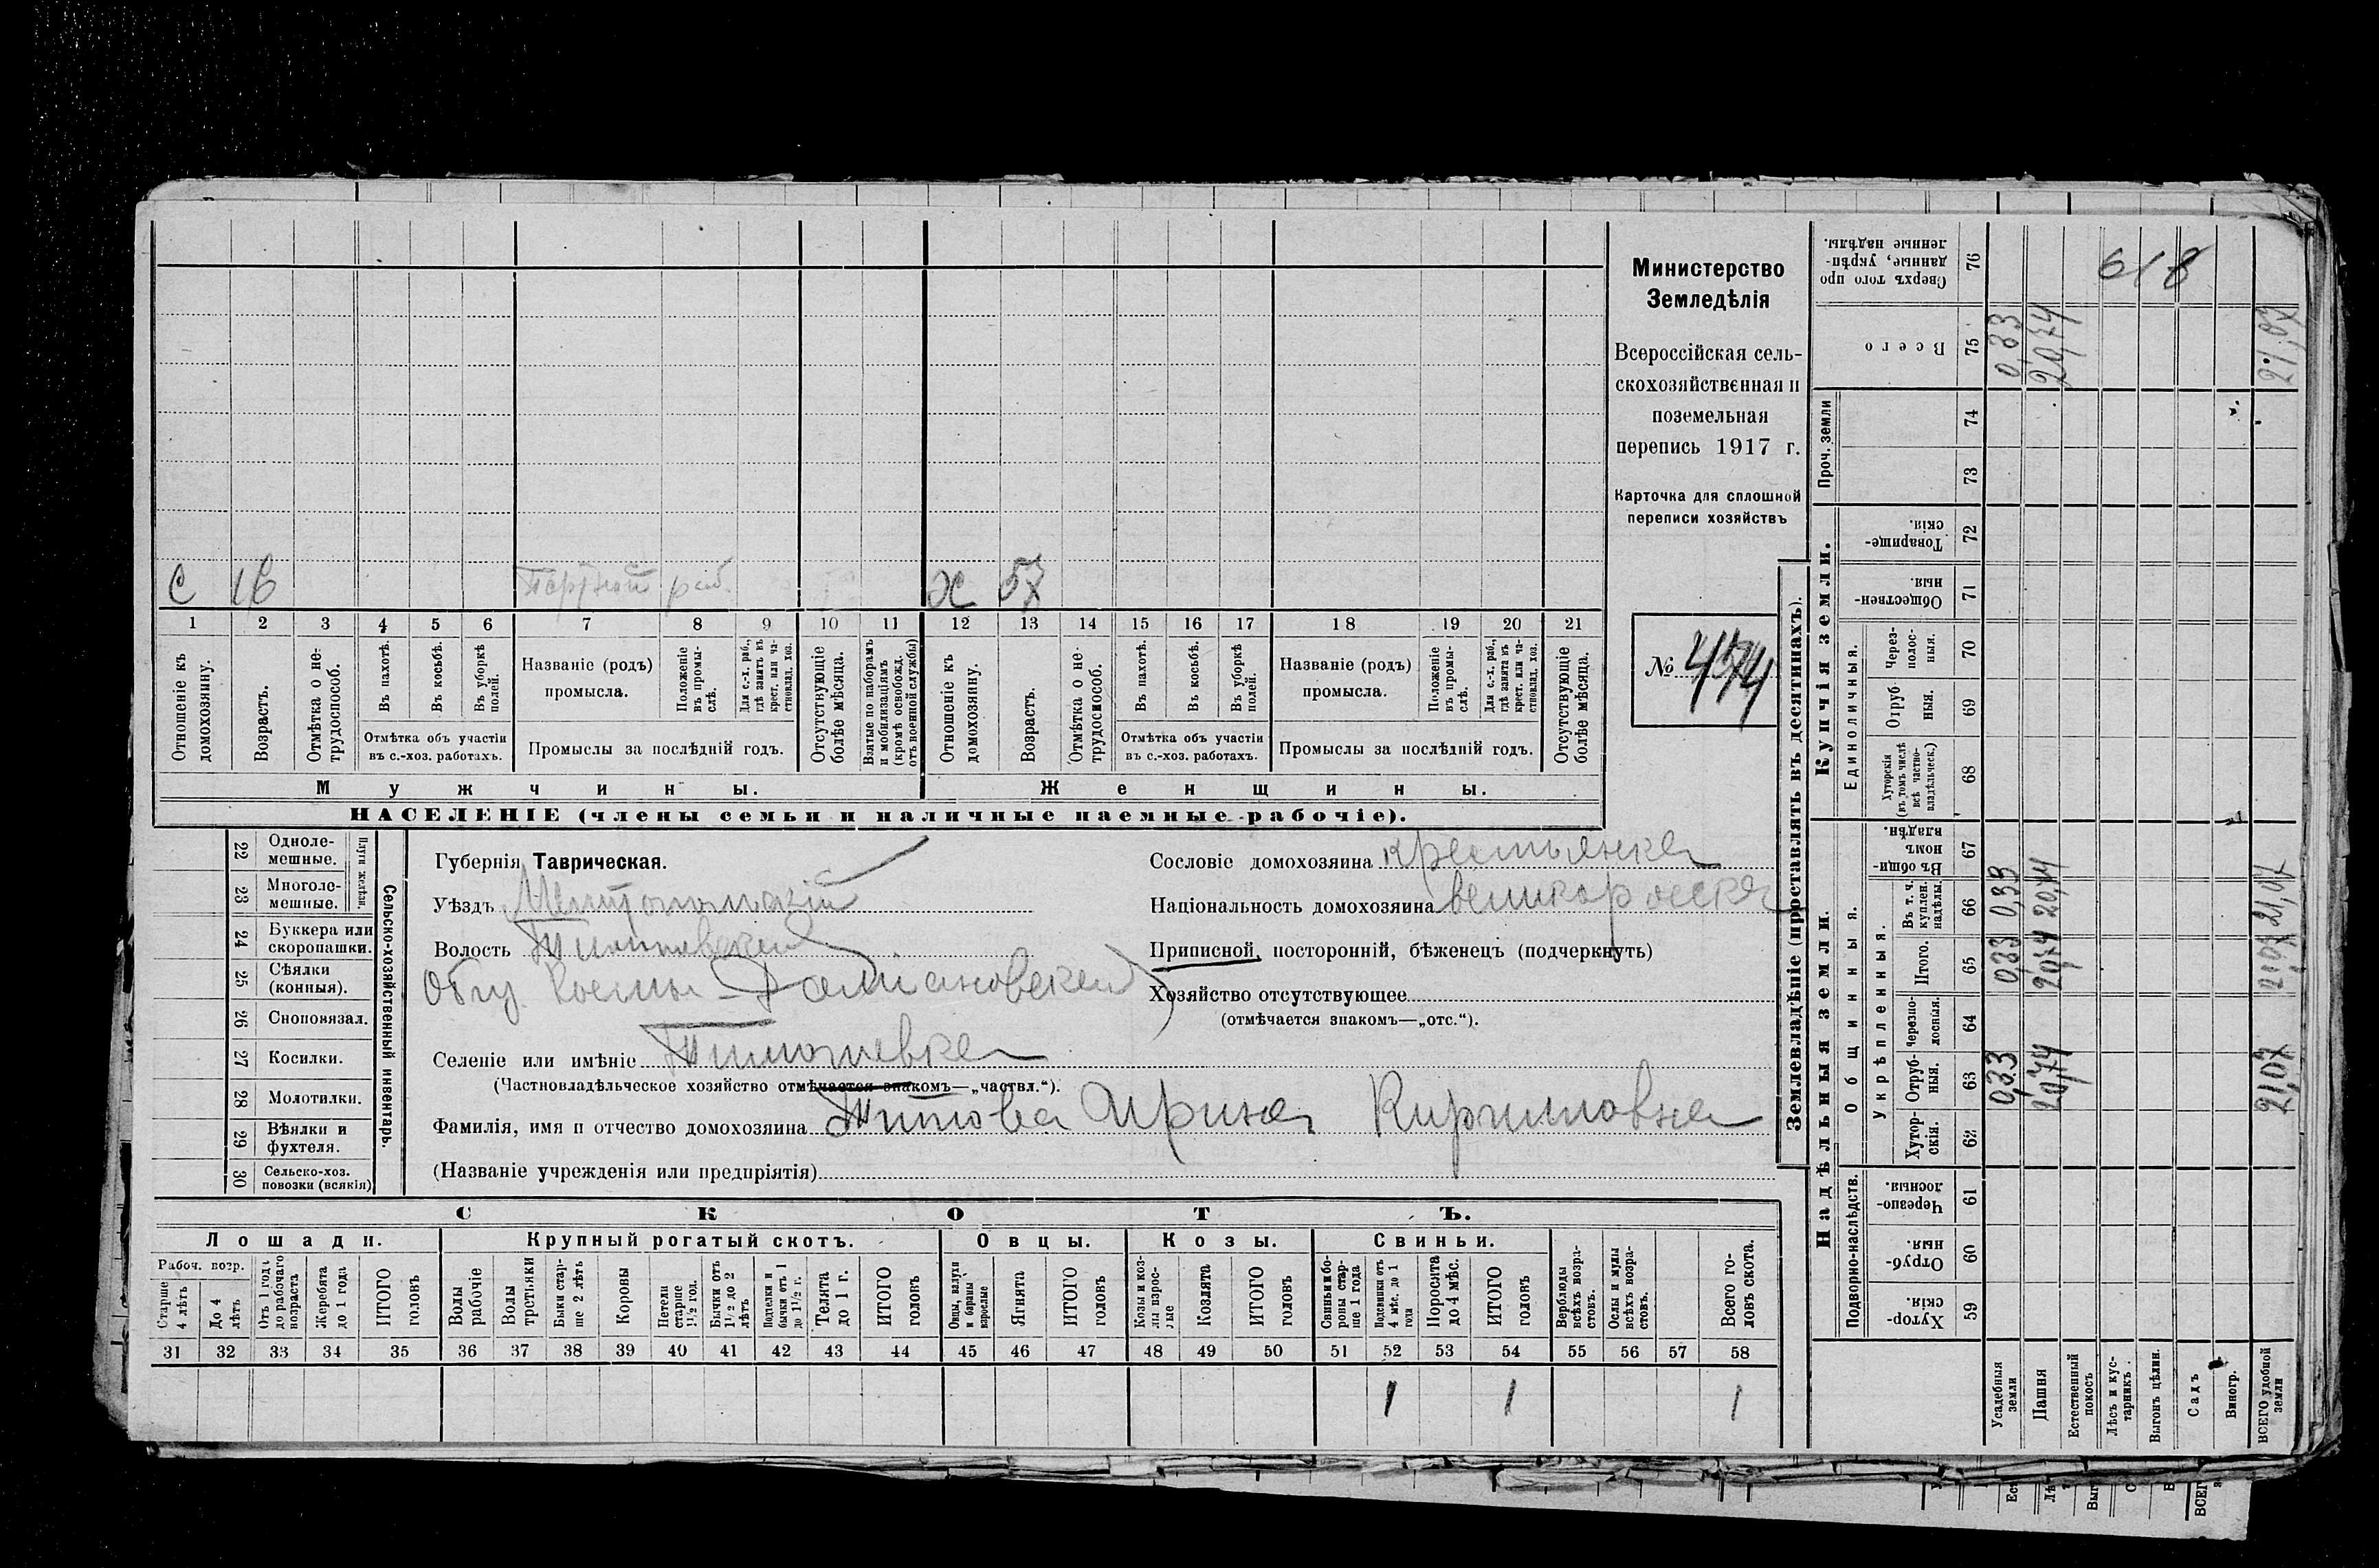 С 16 Портной раб. Ж 57
1 2 3 4 5 6 7 8 9 10 11 12 13 14 15 16 17 18 19 20 21
Отношеніе къ домохозяину.
Возрастъ.
Отмѣтка о не-трудоспособ.
Въ пахотѣ.
Въ косьбѣ.
Въ уборкѣ полей.
Отмѣтка объ участіи
въ с.-хоз. работахъ.
Названіе (родъ)
промысла.
Положеніе въ промы-слѣ.
Для с.-х. раб., гдѣ занятъ въ крест. или ча-стновлад. хоз.
Промыслы за послѣдній годъ.
Отсутствующіе болѣе мѣсяца.
Взятые по наборамъ и мобилизаціямъ (кромѣ освобожд. отъ военной службы)
Отношеніе къ домохозяину.
Возрастъ.
Отмѣтка о не-трудоспособ.
Въ пахотѣ.
Въ косьбѣ.
Въ уборкѣ полей.
Отмѣтка объ участіи
въ с.-хоз. работахъ.
Названіе (родъ)
промысла.
Положеніе въ промы-слѣ.
Для с.-х. раб., гдѣ занята въ крест. или ча-стновлад. хоз.
Промыслы за послѣдній годъ.
Отсутствующіе болѣе мѣсяца.
Мужчины.
Женщины.
НАСЕЛЕНІЕ (члены семьи и наличные наемные рабочіе).
Министерство
Земледѣлія
Всероссійская сель-
скохозяйственная и
поземельная
перепись 1917 г.
Карточка для сплошной
переписи хозяйствъ
№ 474
22 Одноле-мешные.
23 Многоле-мешные.
Плуги желѣзн.
24 Буккера или скоропашки.
25 Сѣялки (конныя).
26 Сноповязал.
27 Косилки.
28 Молотилки.
29 Вѣялки и фухтеля.
30 Сельско-хоз. повозки (всякія)
Сельско-хозяйственный инвентарь.
Губернія Таврическая.
Уѣздъ Мелитопольскій
Волость Тимошевская
Общ. Косьмы-Даміановская
Селеніе или имѣніе Тимошевка
(Частновладѣльческое хозяйство отмѣчается знакомъ—„частвл.“).
Фамилія, имя и отчество домохозяина Титова Ирина Кирилловна
(Названіе учрежденія или предпріятія)
Сословіе домохозяина крестьянка
Національность домохозяина великоросска
Приписной, посторонній, бѣженецъ (подчеркнуть)
Хозяйство отсутствующее
(отмѣчается знакомъ—„отс.“).
СКОТЪ.
Лошади. Крупный рогатый скотъ. Овцы. Козы. Свиньи.
Рабоч. возр.
Старше 4 лѣтъ
До 4 лѣтъ
Отъ 1 года до рабочаго возраста
Жеребята до 1 года
ИТОГО головъ
Волы рабочіе
Волы третьяки
Быки стар-ше 2 лѣтъ
Коровы
Нетели старше 1½ год.
Бычки отъ 1½ до 2 лѣтъ
Подтелки и бычки отъ 1 до 1½ г.
Телята до 1 г.
ИТОГО головъ
Овцы, валухи и бараны взрослые
Ягнята
ИТОГО головъ
Козы и коз-лы взрос-лые
Козлята
ИТОГО головъ
Свиньи и бо-ровы стар-ше 1 года
Подсвинки отъ 4 мѣс. до 1 года
Поросята до 4 мѣс.
ИТОГО головъ
Верблюды всѣхъ возра-стовъ.
Ослы и мулы всѣхъ возра-стовъ.
Всего го-ловъ скота.
31 32 33 34 35 36 37 38 39 40 41 42 43 44 45 46 47 48 49 50 51 52 53 54 55 56 57 58
1 1 1
Землевладѣніе (проставлять въ десятинахъ).
Надѣльныя земли.
Купчія земли.
Проч. земли
Подворно-наслѣдств.
Общинныя.
Укрѣпленныя.
Единоличныя.
Хутор-скія. 59
Отруб-ныя. 60
Черезпо-лосныя. 61
Хутор-скія. 62
Отруб-ныя. 63
Черезпо-лосныя. 64
Итого. 65
Въ т. ч. куплен. надѣлы. 66
Въ общи-номъ владѣн. 67
Хуторскія (въ томъ числѣ всѣ частно-владѣльческ.) 68
Отруб-ныя. 69
Через-полос-ныя. 70
Обществен-ныя. 71
Товарище-скія. 72
73
74
Всего 75
Сверхъ того про-данные, укрѣп-ленные надѣлы. 76
Усадебныя земли 0,33 0,33 0,33 0,33
Пашня 20,74 20,74 20,74 20,74
Естественный покосъ
Лѣсъ и кус-тарникъ.
Выгонъ цѣлин.
Садъ
Виногр.
ВСЕГО удобной земли 21,07 21,07 21,07 21,07
618